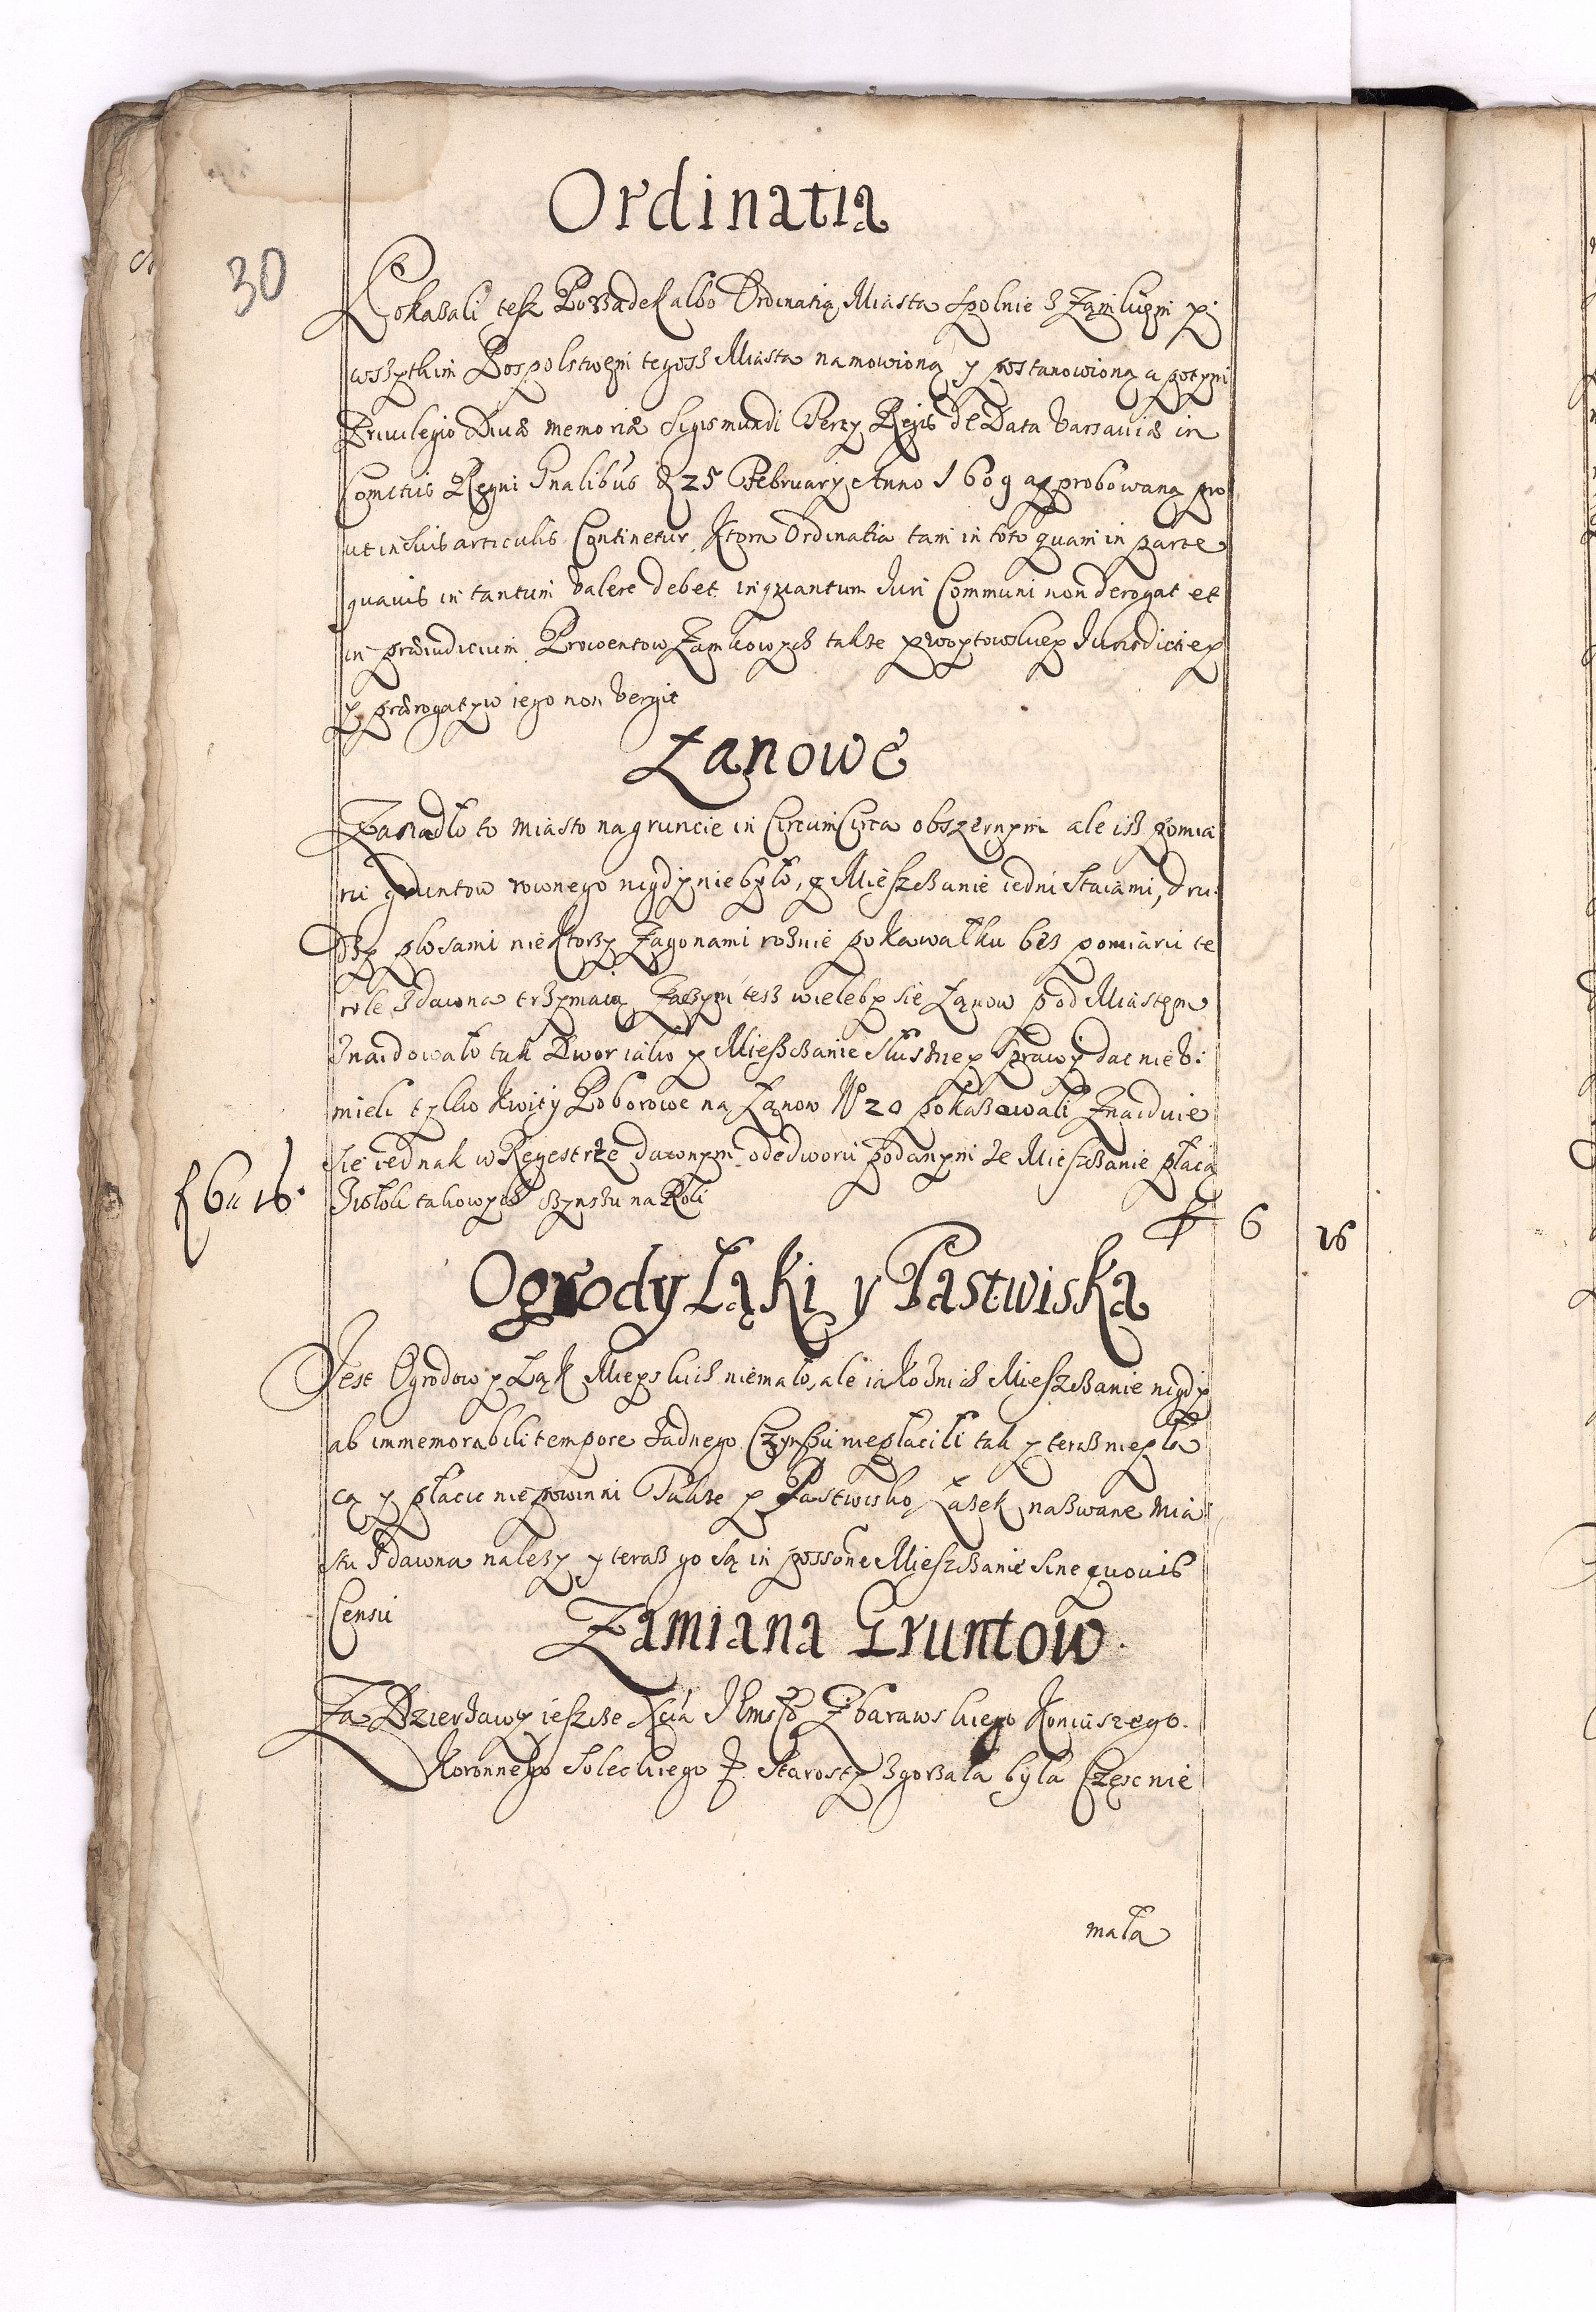 30
Ordinatia
Pokazali tesz Porządek albo Ordinatią Miasta spolnie z Zamkiem y
wszytkim Pospolstwem tegosz Miasta namowioną y postanowioną a potym
Privilegio Divæ memoriæ Sigismundi Tertij Regis de Data Varsaviæ in
Comitijs Regni Gnalibus d 25 February Anno 1609 approbowaną pro
ut in suis articulis Continetur, Ktora Ordinatia tam in toto quam in parte
quavis in tantum valere debet inquantum Juri Communi non derogat et
in præiudicium Prowentow Zamkowych także y woytowskiey Jurisdictiey
y prærogatyw iego non vergit
Łanowe
Zasiadło to miasto na gruncie in CircumCirca obszernym ale isz pomia
ru gruntow rownego nigdy nie było, y Mieszczanie iedni staiami, dru-
dzy płosami niektorzy Zagonami roznie po kawałku bez pomiaru te
role zdawna trzymaią Zaczym tesz wieleby sie Łanow pod Miastem
Znaidowało tak Dwor iako y Mieszczanie słuszney sprawy dac nie v:
mieli tylko kwity Poborowe na Łanow No 20 pokazowali Znaiduie
sie iednak w Regestrze dawnym odedworu podanym że Mieszczanie płacą
Zwłok takowych czynszu na Roli
f 6 " 16 ·
f 6 16
Ogrody Łąki y Pastwiska
Jest Ogrodow y Łąk Mieyskich niemało, ale iako znich Mieszczanie nigdy
ab immemorabili tempore żadnego Czynszu niepłacili tak y teraz niepła
cą y płacic niepowinni Także y Pastwisko Łazek nazwane Mia
stu zdawna należy y teraz go są in possone Mieszczanie sine quovis
Censu
Zamiana Gruntow.
Za Dzierżawy ieszcze Xcia JEmsci Zbarawskiego Koniuszego.
Koronnego Soleckiego P. Starosty zgorzała była Częsc nie
mała